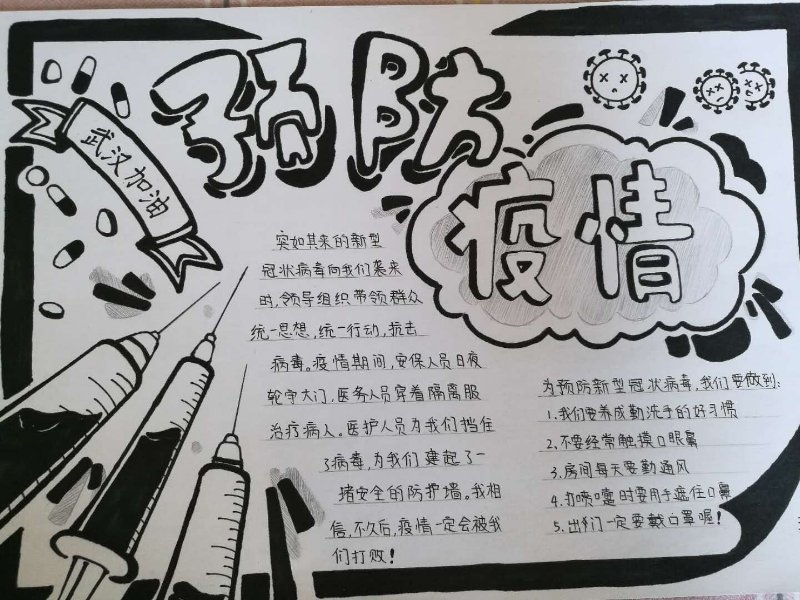 预防
疫情
武汉加油
突如其来的新型
冠状病毒向我们袭来
时,领导组织带领群众
统一思想,统一行动,抗击
病毒。疫情期间,安保人员日夜
轮守大门,医务人员穿着隔离服
治疗病人。医护人员为我们挡住
了病毒,为我们建起了一
堵安全的防护墙。我相
信,不久后,疫情一定会被我
们打败!
为预防新型冠状病毒,我们要做到:
1.我们要养成勤洗手的好习惯
2.不要经常触摸口眼鼻
3.房间每天要勤通风
4.打喷嚏时要用手遮住口鼻
5.出门一定要戴口罩喔!